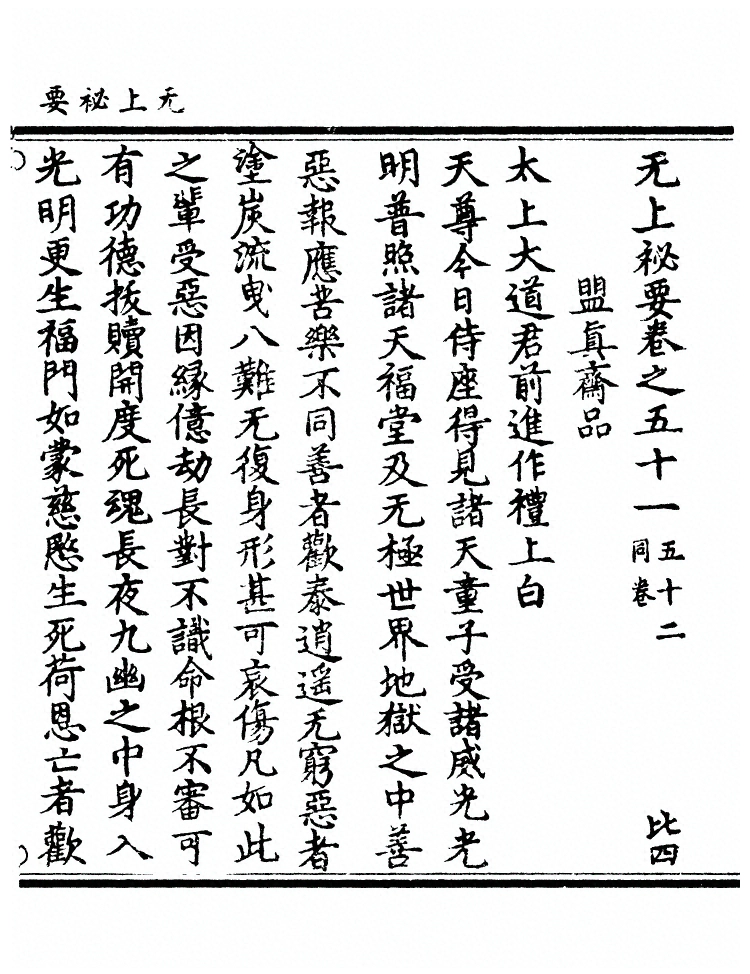 无上祕要
无上祕要卷之五十一 五十二同卷 比四
盟真齋品
太上大道君前進作禮上白
天尊今日侍座得見諸天童子受諸威光光
明普照諸天福堂及无極世界地獄之中善
惡報應苦樂不同善者歡泰逍遥无窮惡者
塗炭流曳八難无復身形甚可哀傷凡如此
之輩受惡因緣億劫長對不識命根不審可
有功德拔贖開度死魂長夜九幽之中身入
光明更生福門如蒙慈愍生死荷恩亡者歡